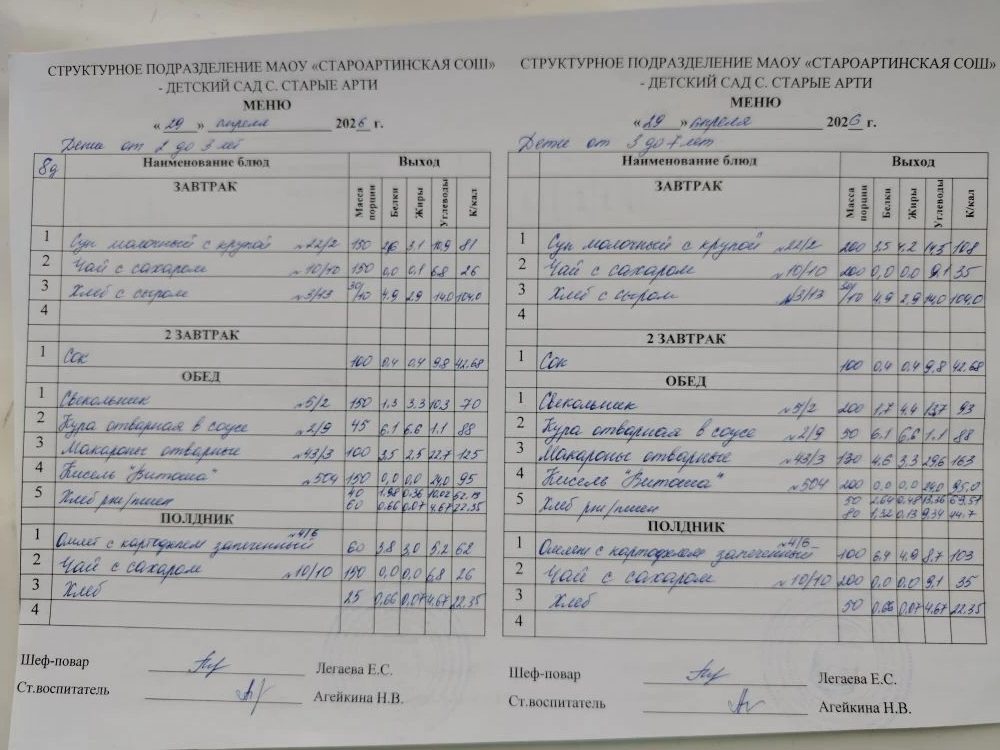 СТРУКТУРНОЕ ПОДРАЗДЕЛЕНИЕ МАОУ «СТАРОАРТИНСКАЯ СОШ»
- ДЕТСКИЙ САД С. СТАРЫЕ АРТИ
МЕНЮ
« 29 » апреля 2026 г.
Дети от 2 до 3 лет
8д Наименование блюд Выход
ЗАВТРАК Масса порции Белки Жиры Углеводы К/кал
1 Суп молочный с крупой №22/2 150 2,6 3,1 10,9 81
2 Чай с сахаром №10/10 150 0,0 0,1 6,8 26
3 Хлеб с сыром №3/13 30/10 4,9 2,9 14,0 104,0
4
2 ЗАВТРАК
1 Сок 100 0,4 0,4 9,8 42,68
ОБЕД
1 Свекольник №5/2 150 1,3 3,3 10,3 70
2 Кура отварная в соусе №2/9 45 6,1 6,6 1,1 88
3 Макароны отварные №43/3 100 3,5 2,5 22,7 125
4 Кисель "Витоша" №504 150 0,0 0,0 24,0 95
5 Хлеб рж/пшен 40 1,98 0,36 10,02 52,13
60 0,66 0,07 4,67 22,35
ПОЛДНИК
1 Омлет с картофелем запеченный №4/6 60 3,8 3,0 5,2 62
2 Чай с сахаром №10/10 150 0,0 0,0 6,8 26
3 Хлеб 25 0,66 0,07 4,67 22,35
4
Шеф-повар Легаева Е.С.
Ст.воспитатель Агейкина Н.В.
СТРУКТУРНОЕ ПОДРАЗДЕЛЕНИЕ МАОУ «СТАРОАРТИНСКАЯ СОШ»
- ДЕТСКИЙ САД С. СТАРЫЕ АРТИ
МЕНЮ
« 29 » апреля 2026 г.
Дети от 3 до 7 лет
Наименование блюд Выход
ЗАВТРАК Масса порции Белки Жиры Углеводы К/кал
1 Суп молочный с крупой №22/2 200 3,5 4,2 14,5 108
2 Чай с сахаром №10/10 200 0,0 0,0 9,1 35
3 Хлеб с сыром №3/13 30/10 4,9 2,9 14,0 104,0
4
2 ЗАВТРАК
1 Сок 100 0,4 0,4 9,8 42,68
ОБЕД
1 Свекольник №5/2 200 1,7 4,4 13,7 93
2 Кура отварная в соусе №2/9 50 6,1 6,6 1,1 88
3 Макароны отварные №43/3 130 4,6 3,3 29,6 163
4 Кисель "Витоша" №504 200 0,0 0,0 24,0 95,0
5 Хлеб рж/пшен 50 2,64 0,48 13,36 69,51
80 1,32 0,13 9,34 44,7
ПОЛДНИК
1 Омлет с картофелем запеченный №4/6 100 6,4 4,9 8,7 103
2 Чай с сахаром №10/10 200 0,0 0,0 9,1 35
3 Хлеб 50 0,66 0,07 4,67 22,35
4
Шеф-повар Легаева Е.С.
Ст.воспитатель Агейкина Н.В.